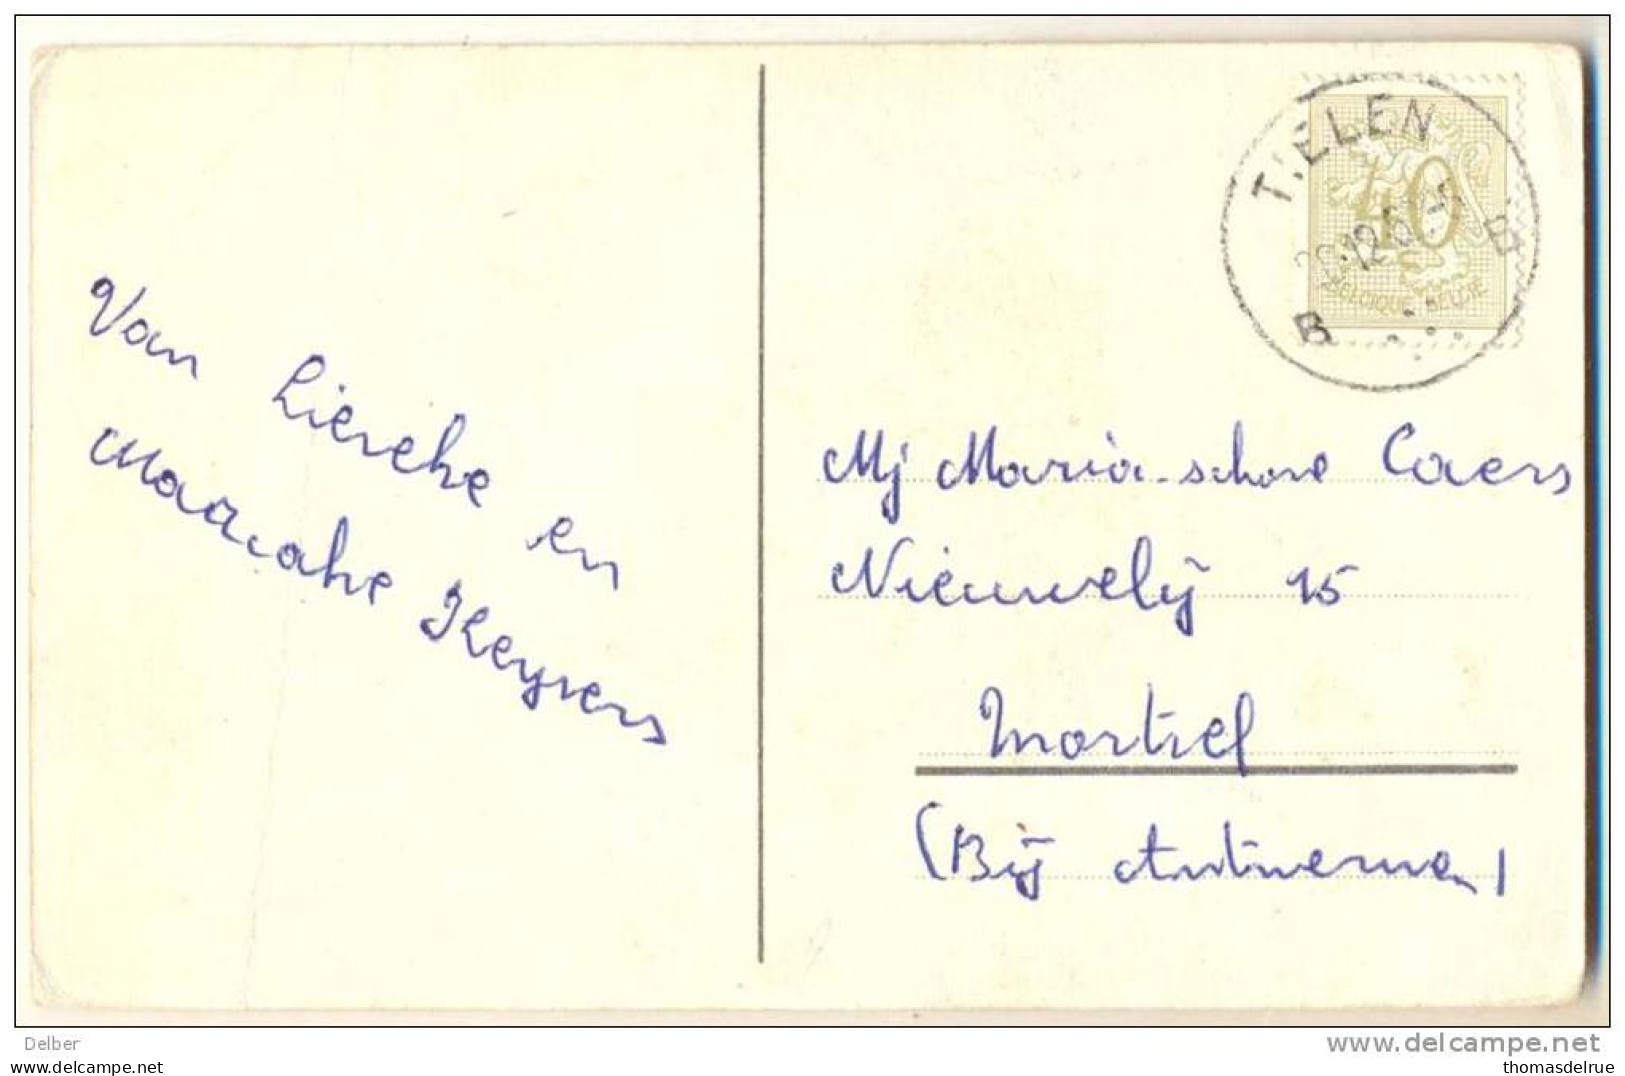 Van Liereke en
Maaike Heyvers
T.ELEN
40
BELGIQUE-BELGIË
B B
Mj Maria-schore Caers
Nieuwelij 15
Mortsel
(Bij Antwerpen)
Delber
www.delcampe.net
www.delcampe.net
thomasdelrue